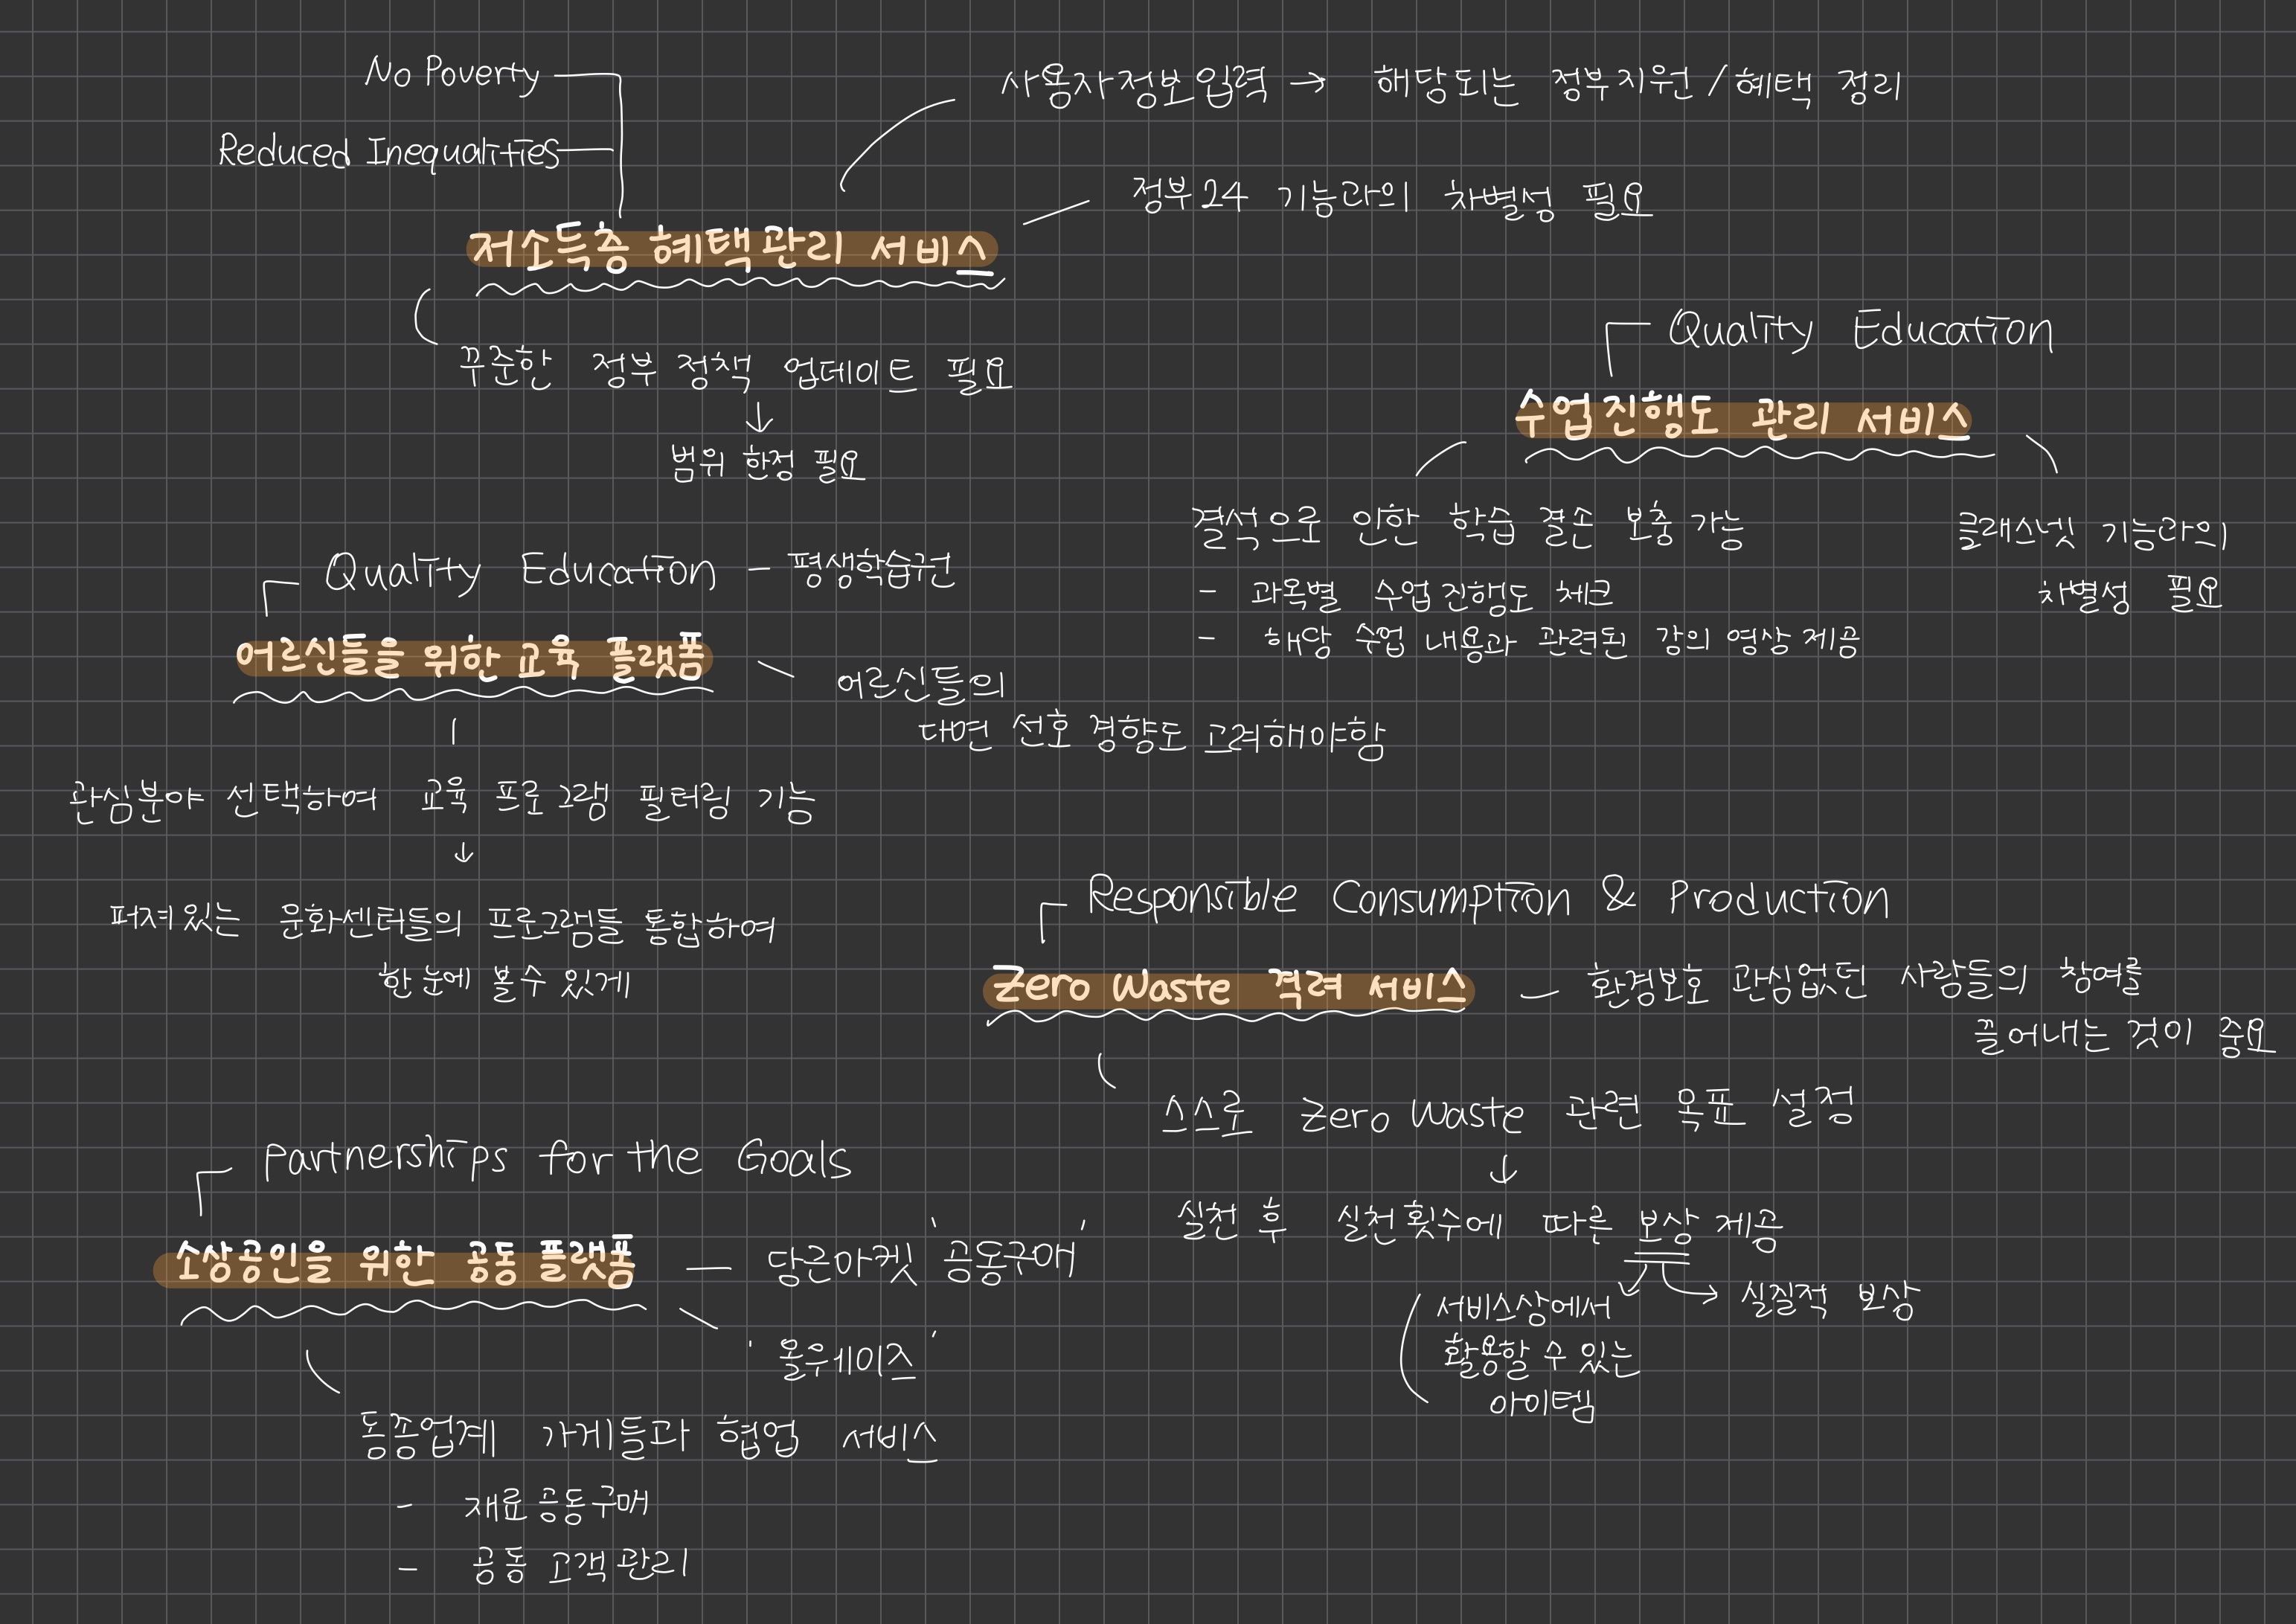 No Poverty
Reduced Inequalities
사용자정보입력 → 해당되는 정부지원/혜택 정리
정부24 기능과의 차별성 필요
저소득층 혜택관리 서비스
꾸준한 정부 정책 업데이트 필요
↓
범위 한정 필요
Quality Education
수업진행도 관리 서비스
결석으로 인한 학습 결손 보충 가능
- 과목별 수업진행도 체크
- 해당 수업 내용과 관련된 강의 영상 제공
클래스넷 기능과의
차별성 필요
Quality Education - 평생학습권
어르신들을 위한 교육 플랫폼
어르신들의
대면 선호 경향도 고려해야함
관심분야 선택하여 교육 프로그램 필터링 기능
↓
퍼져있는 문화센터들의 프로그램들 통합하여
한 눈에 볼 수 있게
Responsible Consumption & Production
Zero Waste 격려 서비스
환경보호 관심없던 사람들의 참여를
끌어내는 것이 중요
스스로 Zero Waste 관련 목표 설정
↓
실천 후 실천횟수에 따른 보상 제공
서비스상에서
활용할 수 있는
아이템
→ 실질적 보상
Partnerships for the Goals
소상공인을 위한 공동 플랫폼
당근마켓 '공동구매'
'올웨이즈'
동종업계 가게들과 협업 서비스
- 재료 공동구매
- 공동 고객관리